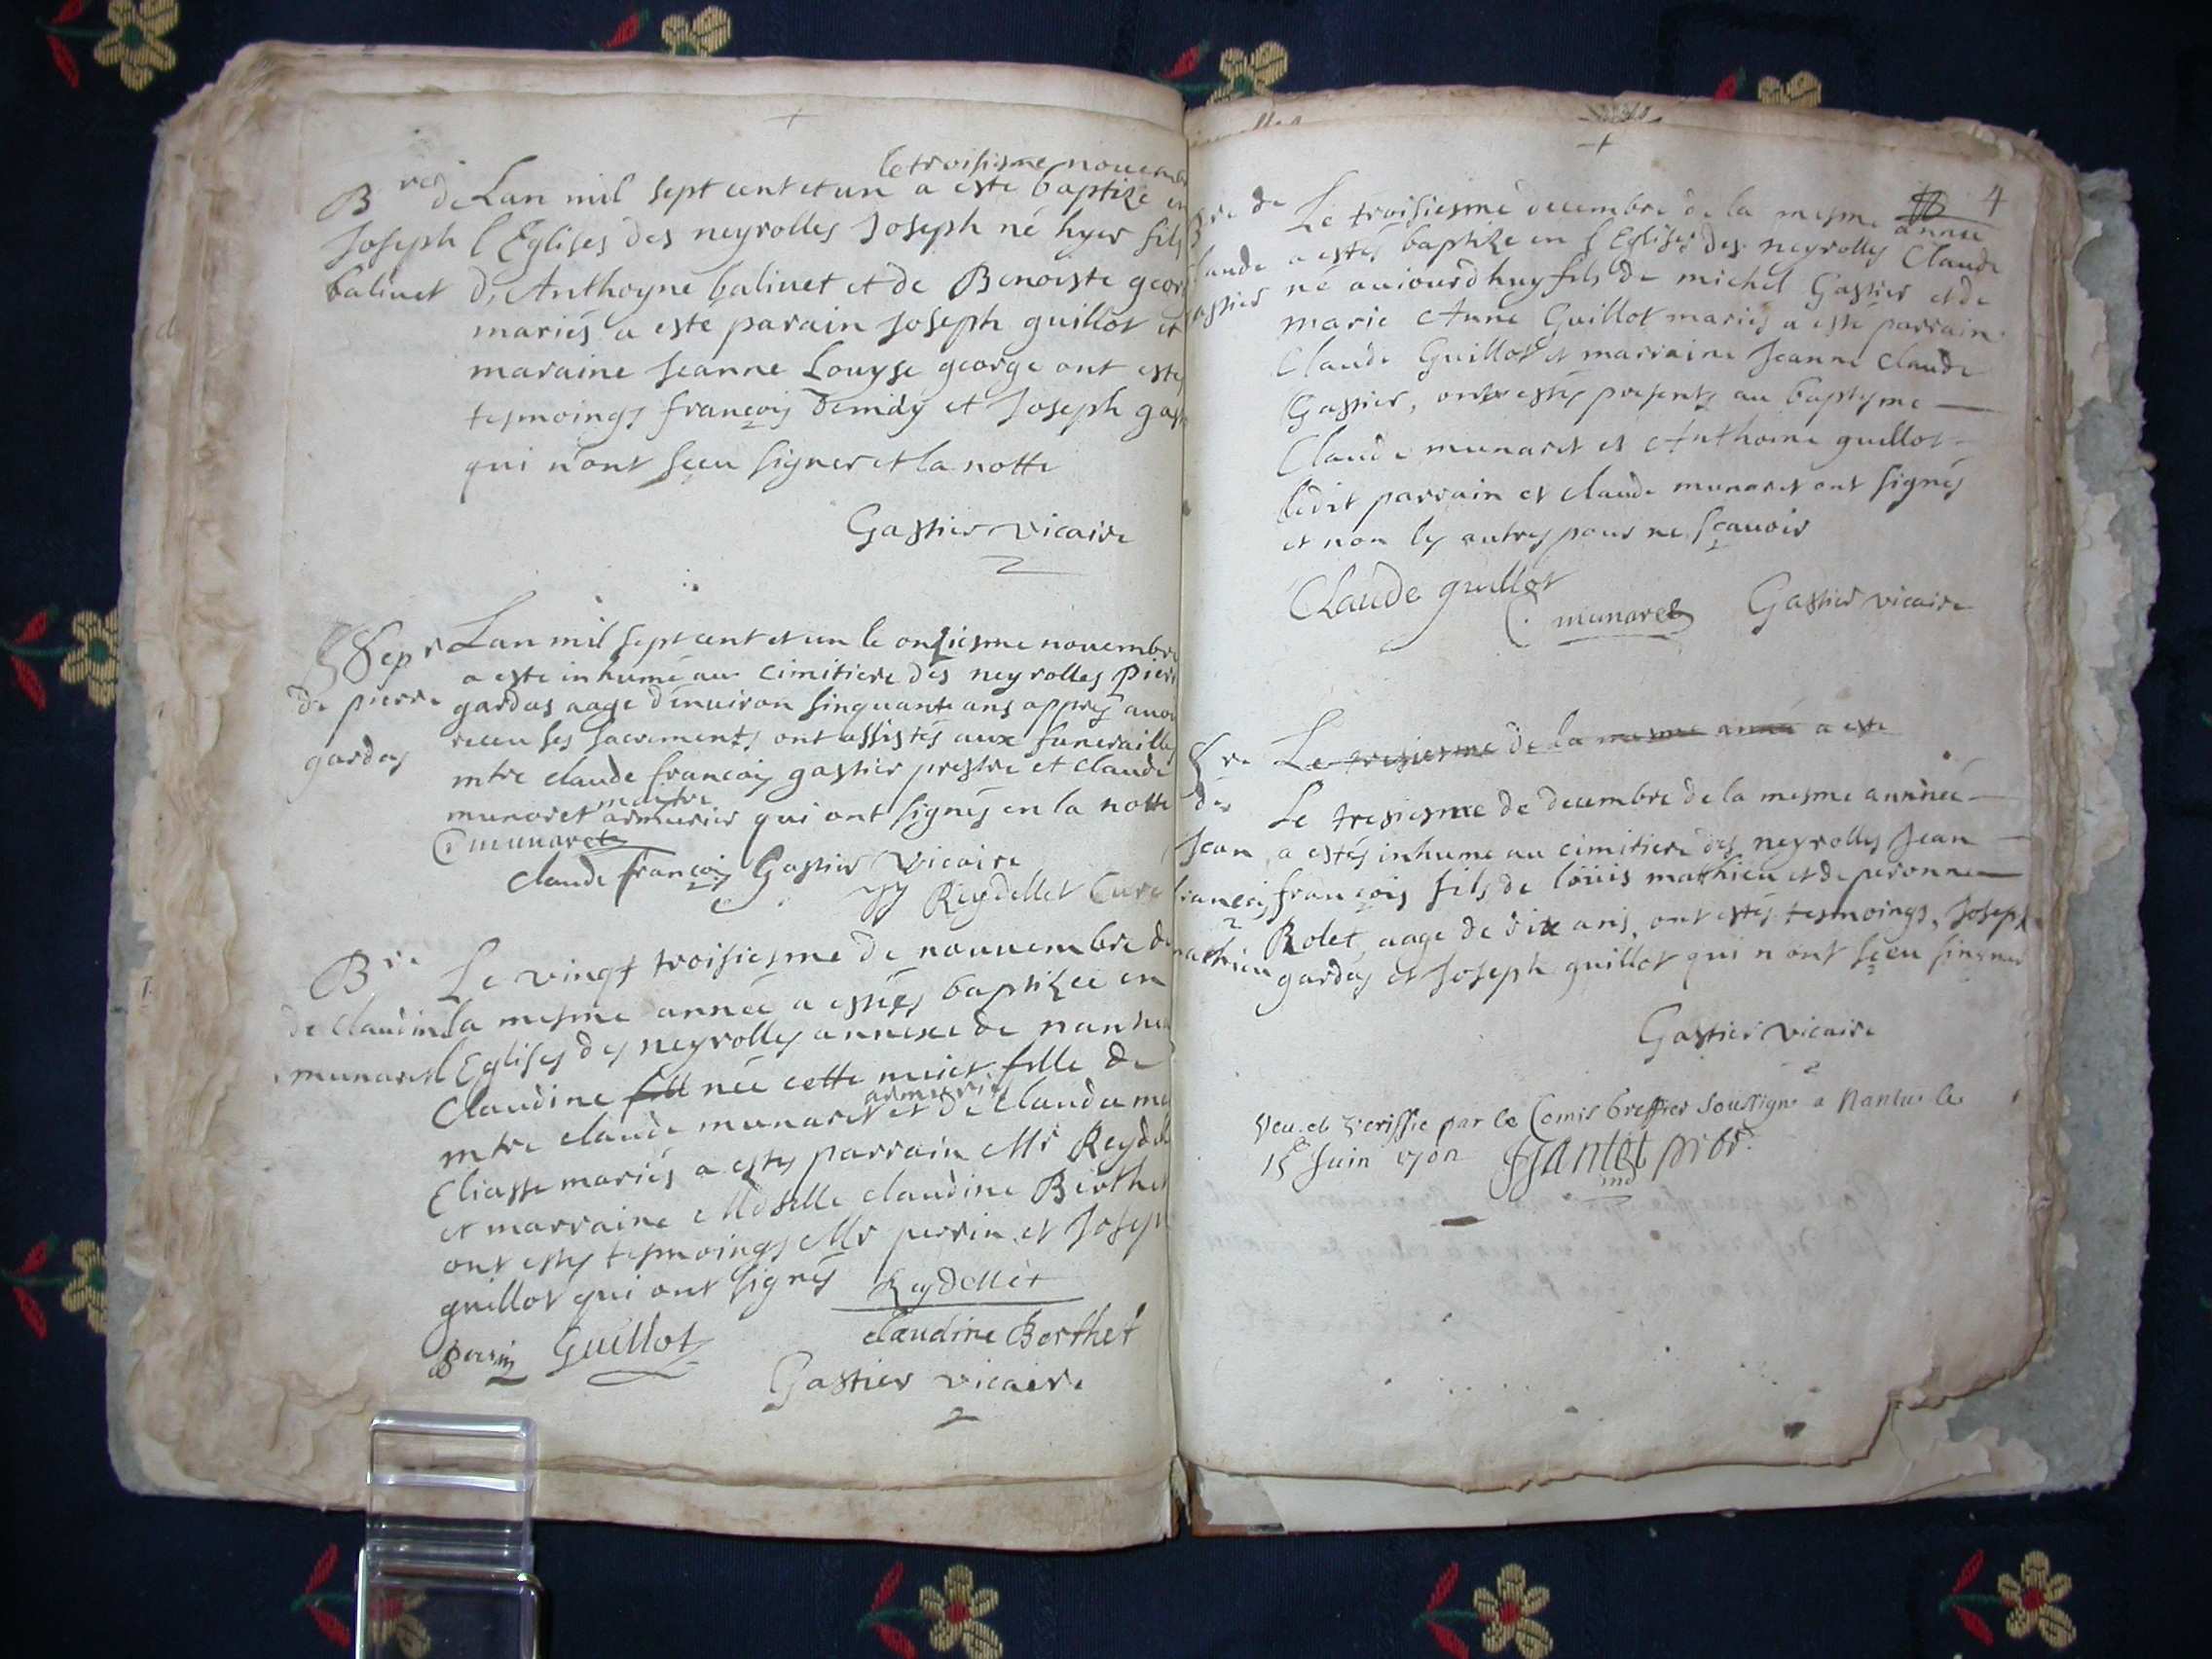 le troisiesme nouemb
Bre de Lan mil sept cent et un a este baptizé en
Joseph l'Eglises des neyrolles Joseph né hyer fils
balinet d'Anthoyne balinet et de Benoiste geor
mariés a este parain Joseph guillot et
maraine Jeanne Louyse george ont estes
tesmoings françois Demidy et Joseph gas
qui n'ont sceu signer et la notte
Gastier vicaire
Sepr Lan mil sept cent et un le onziesme nouembre
a este inhumé au cimitiere des neyrolles pierr
de pierre gardas aage denuiron sinquante ans appres auoi
receu ses sacrements ont assistés aux funerailles
gardas mtre claude francois gastier prestre et claude
maitre
munaret armurier qui ont signés en la notte
C munaret
claude francois Gastier Vicaire
Reydellet Curé
Bre Le vingt troisiesme de nouuembre de
de claudine la mesme année a estées baptizée en
munaret l'Eglises des neyrolles annexe de nantua
Claudine fill née cette nuict fille de
armurier
mtre claude munaret et de clauda ma
Eliasse mariés a estes parrain Mr Reydell
et marraine Mdselle claudine Berthet
ont estes tesmoings Mr perrin et Joseph
guillot qui ont signés Reydellet
perrin Guillot claudine Berthet
Gastier vicaire
4
Bre de Le troisiesme decembre de la mesme année
laude a estés baptize en l'Eglises des neyrolles Claude
gastier né auiourdhuy fils de michel Gastier et de
marie Anne Guillot mariés a esté parrain
Claude Guillot et marraine Jeanne claude
Gastier, ont estés presents au baptesme —
Claude munaret et Anthoine guillot
ledit parrain et claude munaret ont signés
et non les autres pour ne scauoir
Claude guillot
C. munaret Gastier vicaire
Sre Le tresiesme de la mesme année a este
de Le tresiesme de decembre de la mesme annnée —
Jean a estés inhume au cimitiere des neyrolles Jean —
francois françois fils de louis mathieu et de peronne —
mathieu Rolet, aage de dix ans, ont estés tesmoings, Joseph
gardas et Joseph guillot qui n'ont sceu singner
Gastier vicaire
Veu et Veriffie par le Comis Greffier Soussigné a Nantua le
15e Juin 1702